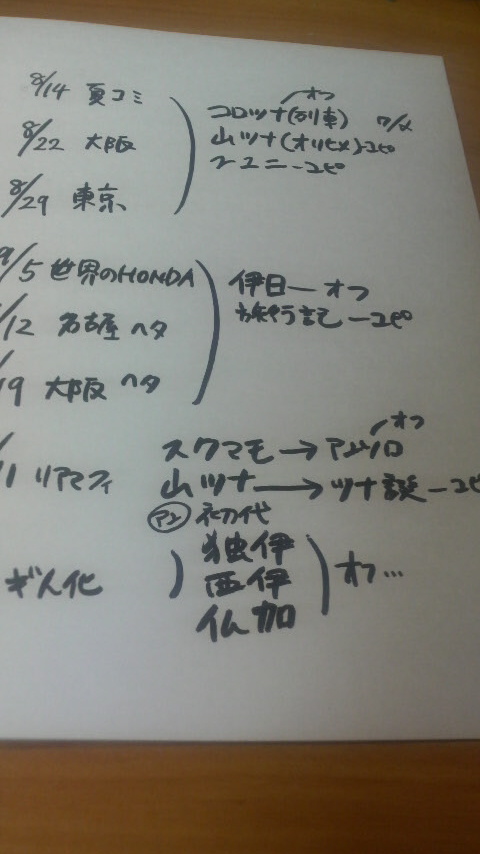 8/14 夏コミ
オフ
コロツナ(列車) ワ/メ
8/22 大阪
山ツナ(オリヒメ)-コピ
ユニ-コピ
8/29 東京
9/5 世界のHONDA
伊日-オフ
旅行記-コピ
/12 名古屋 ヘタ
/19 大阪 ヘタ
オフ
スクマモ→アンソロ
/1 リアマフィ
山ツナ→ツナ誕-コピ
アン 初代
ぎん化
独伊
西伊
仏加
オフ…